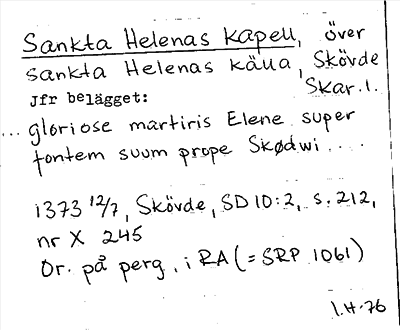 Sankta Helenas kapell, över
sankta Helenas källa, Skövde
Jfr belägget: Skar. l.
... gloriose martiris Elene super
fontem suum prope Skødwi ....
1373 12/7, Skövde, SD 10:2, s. 212,
nr X 245
Or. på perg. i RA (= SRP 1061)
1.H.76